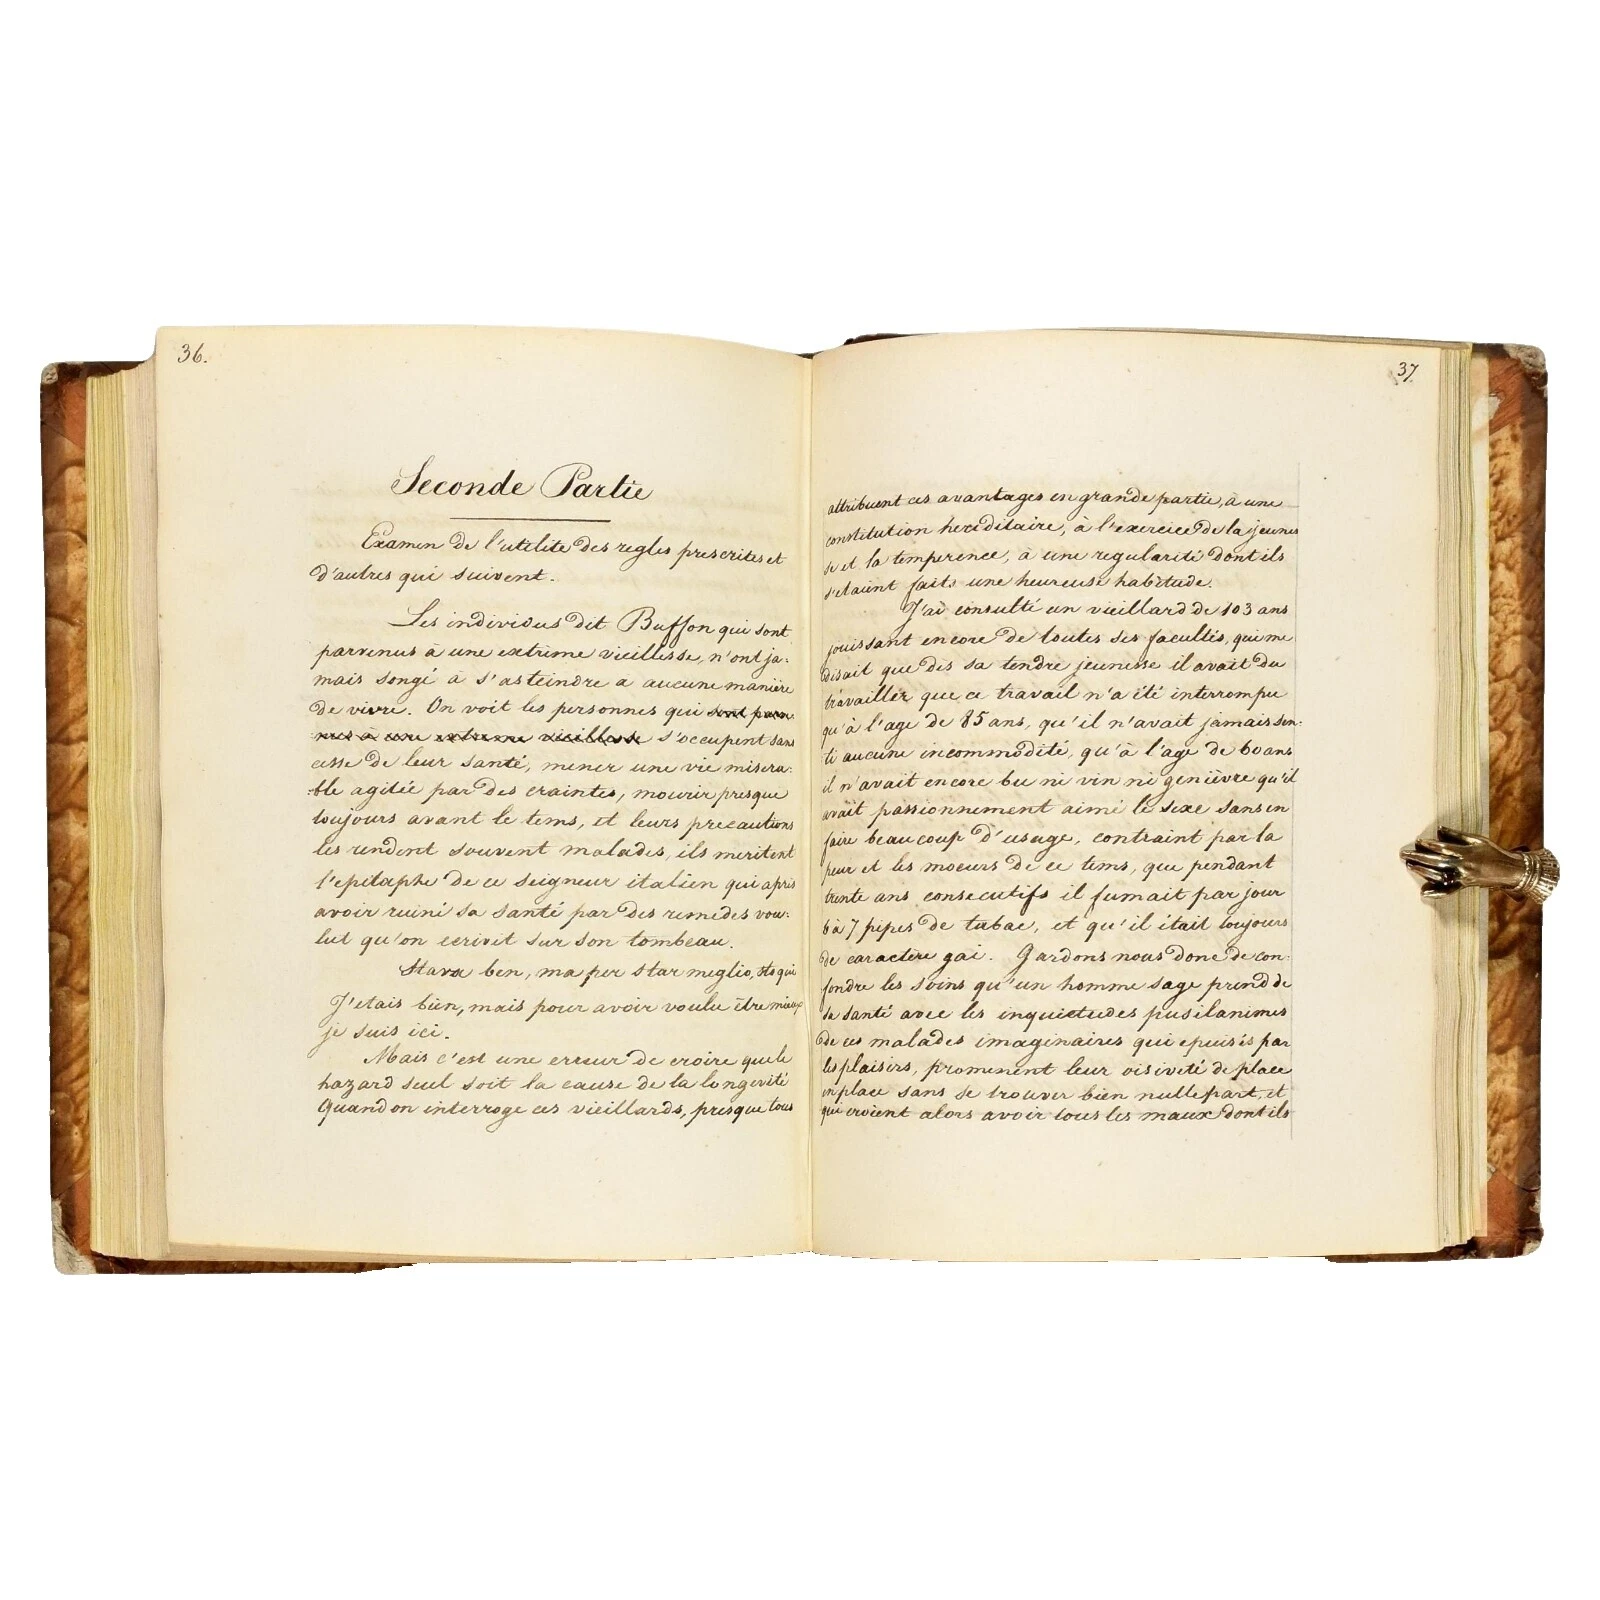 36.
Seconde Partie
Examen de l'utilité des regles prescrites et
d'autres qui suivent.
Les individus dit Buffon qui sont
parvenus à une extrème vieillesse, n'ont ja-
mais songé à s'asteindre a aucune manière
de vivre. On voit les personnes qui sont parve
nus à une extreme vieillesse s'occupent sans
cesse de leur santé, mener une vie misera-
ble agitée par des craintes, mourir presque
toujours avant le tems, et leurs precautions
les rendent souvent malades, ils meritent
l'epitaphe de ce seigneur italien qui après
avoir ruiné sa santé par des remedes vou-
lut qu'on ecrivit sur son tombeau.
Stava ben, ma per star meglio, sto qui
J'etais bien, mais pour avoir voulu être mieux
je suis ici.
Mais c'est une erreur de croire que le
hazard seul soit la cause de la longevité
Quand on interroge ces vieillards, presque tous
37
attribuent ces avantages en grande partie, à une
constitution hereditaire, à l'exercice de la jeunes
se et la temperence, à une regularité dont ils
s'etaient faits une heureuse habitude.
J'ai consulté un vieillard de 103 ans
jouissant encore de toutes ses facultés, qui me
disait que dès sa tendre jeunesse il avait du
travailler que ce travail n'a été interrompu
qu'à l'age de 85 ans, qu'il n'avait jamais sen-
ti aucune incommodité, qu'à l'age de 60 ans
il n'avait encore bu ni vin ni genièvre qu'il
avait passionnement aimé le sexe sans en
faire beaucoup d'usage, contraint par la
peur et les moeurs de ce tems, que pendant
trente ans consecutifs il fumait par jour
6 à 7 pipes de tabac, et qu'il était toujours
de caractère gai. Gardons nous donc de con-
fondre les soins qu'un homme sage prend de
sa santé avec les inquietudes pusilanimes
de ces malades imaginaires qui epuisés par
les plaisirs, promenent leur oisiveté de place
en place sans se trouver bien nulle part, et
qui croient alors avoir tous les maux dont ils